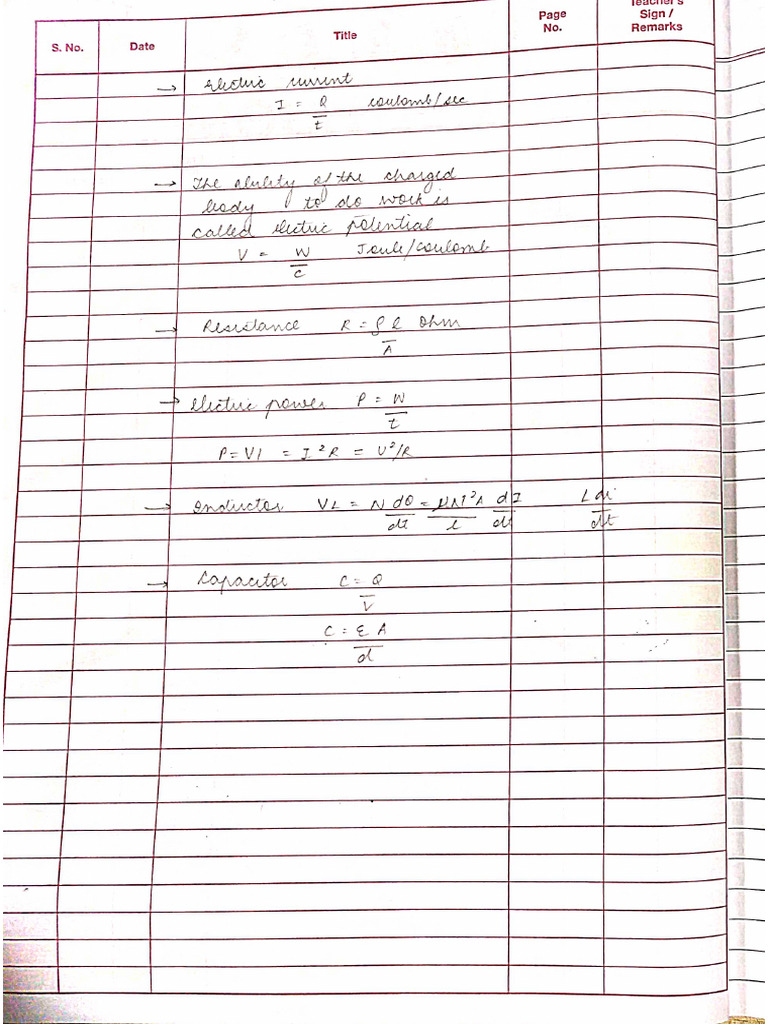 S. No. Date Title Page No. Teacher's Sign / Remarks
→ Electric current
I = Q/t coulomb/sec
→ The ability of the charged
body to do work is
called electric potential
V = W/C Joule/coulomb
→ Resistance R = ρl/A ohm
→ Electric power P = W/t
P = VI = I²R = V²/R
→ Inductor VL = N dΦ/dt = μN²A/l dI/dt L di/dt
→ Capacitor C = Q/V
C = ε A/d